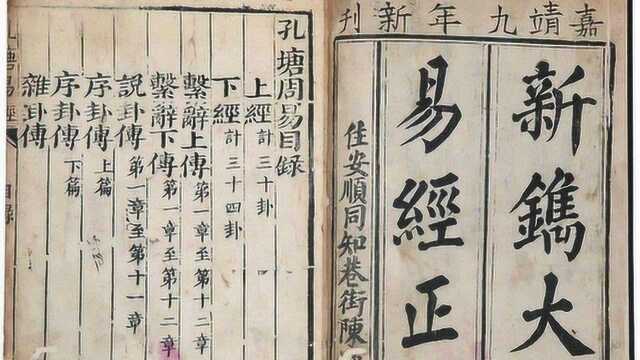 嘉靖九年新刊
新鐫大
易經正
住安順同知巷街陳
孔塘周易目錄
上經計三十卦
下經計三十四卦
繫辭上傳第一章至第十二章
繫辭下傳第一章至第十二章
說卦傳第一章至第十一章
序卦傳上篇
序卦傳下篇
雜卦傳
易經 目錄